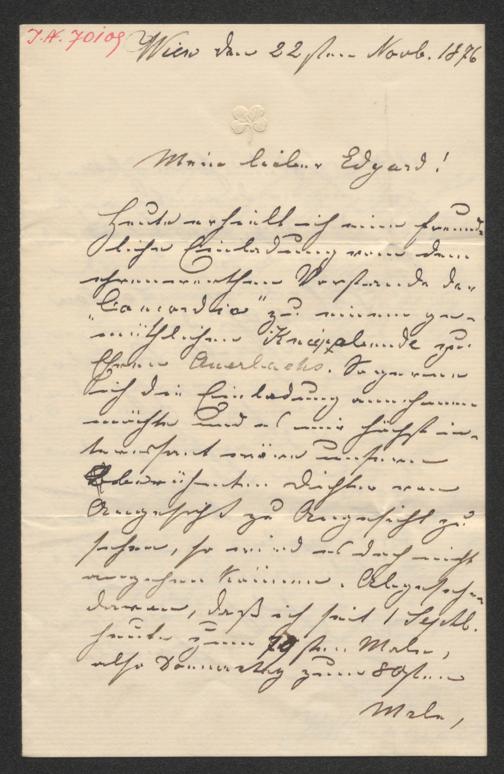 J.N. 70109
Wien den 22sten Novb. 1876
Mein lieber Edgard!
Heute erhielt ich eine freund-
liche Einladung von dem
ehrenwerthen Vorstande der
"Concordia" zu einem ge-
müthlichen Kneipabende zu
Ehren Auerbachs. So gerne
ich die Einladung annehmen
möchte und es mir höchst in-
teressant wäre unseren
berühmten Dichter von
Angesicht zu Angesicht zu
sehen, so wird es doch nicht
angehen können. Abgesehen
davon, daß ich seit 1 Septb.
heute zum 79sten Male,
also Donnerstag zum 80sten
Male,